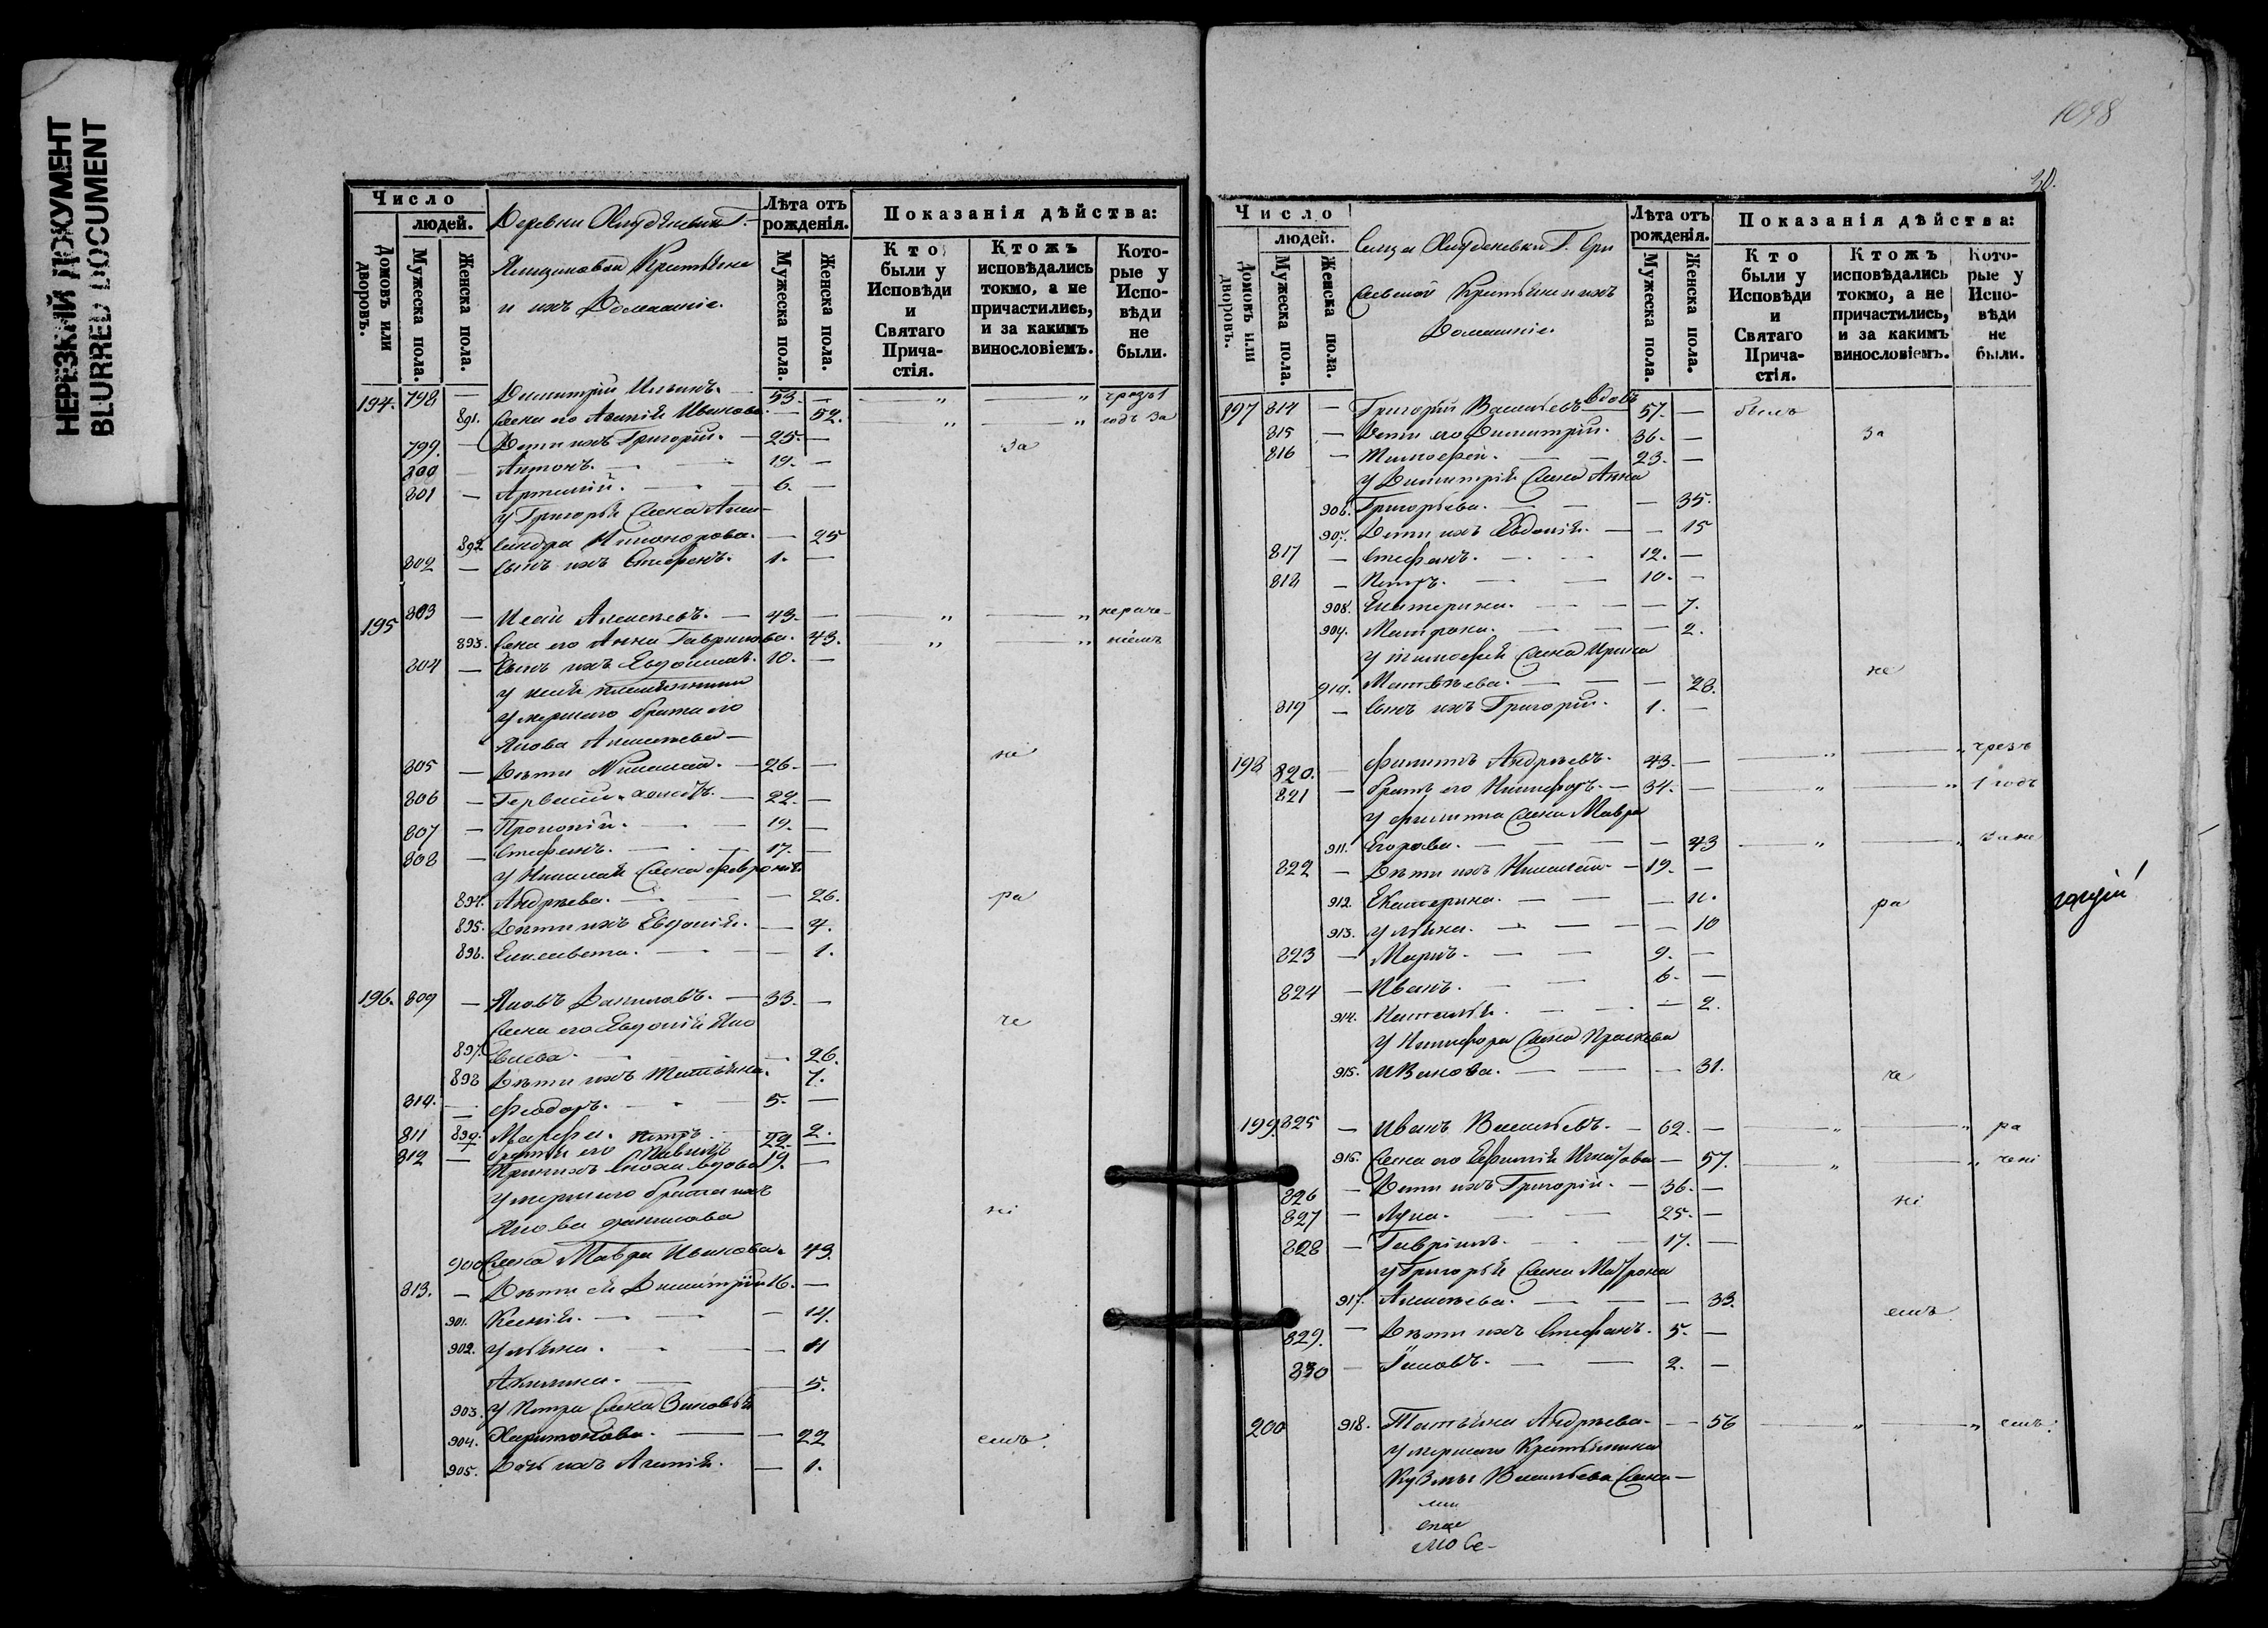 НЕРЕЗКИЙ ДОКУМЕНТ
BLURRED DOCUMENT
Число
людей.
Домовъ или дворовъ.
Мужеска пола.
Женска пола.
Деревни
Крестьяне
и ихъ Домашніе.
Лѣта отъ рожденія.
Мужеска пола.
Женска пола.
Показанія дѣйства:
Кто были у Исповѣди и Святаго Прича-стія.
Ктожъ исповѣдались токмо, а не причастились, и за какимъ винословіемъ.
Кото-рые у Испо-вѣди не были.
194. 798 — Димитрій Ильинъ. 53. — „ „ чрезъ 1
891. Жена его Агапія Иванова — 52. „ „ годъ за
799. — Дети ихъ Григорій. — 25. — За
800 — Антонъ. 19. —
801 — Артемій. 6. —
У Григорія Жена Алек-
892 сандра Никонорова. — 25
802 — Сынъ ихъ Стефанъ. 1. —
195 803 — Исаій Алексѣевъ. — 43. — „ „ нераче-
893. Жена его Анна Гаврилова. 43. „ „ ніемъ
804 — Сынъ ихъ Евдокимъ. 10. —
у Исаія племянники
умершаго брата его
Якова Алексѣева —
805 — Дѣти Николай. — 26. — не
806 — 22. —
807 — Прокопій. 19. —
808 — Стефанъ. 17. —
У Николая Жена Февронія
894. Андрѣева. — 26. ра
895. Дѣти ихъ Евдокія. — 4.
896. Елисавета. — 1.
196. 809 — Яковъ Даниловъ. — 33. —
Жена его Евдокія Яко че
897. влева. — 26.
898 Дѣти ихъ Татьяна. 7.
810. — Феодоръ. 5. —
899. Марфа. 2.
811 братья его Петръ 22. —
812 — Павелъ 19. —
При нихъ сноха вдова
умершаго брата ихъ
Якова Данилова ні
900 Жена Мавра Иванова. 43.
813. — Дѣти ея Димитрій 16. —
901. Ксенія. — 14.
902. Ульяна. — 11
Акилина. — 5.
903. У Петра Жена Зиновія
904. Харитонова. — 22 емъ.
905. Дочь ихъ Агапія. — 1.
1098
30.
Число
людей.
Домовъ или дворовъ.
Мужеска пола.
Женска пола.
Крестьяне и ихъ
Домашніе.
Лѣта отъ рожденія.
Мужеска пола.
Женска пола.
Показанія дѣйства:
Кто были у Исповѣди и Святаго Прича-стія.
Ктожъ исповѣдались токмо, а не причастились, и за какимъ винословіемъ.
Кото-рые у Испо-вѣди не были.
197 814 — Григорій Васильевъ вдовъ 57. — былъ
815 — Дети его Димитрій. 36. — За
816 — Тимофей. 23. —
У Димитрія Жена Анна
906. Григорьева. — 35.
907. Дети ихъ Евдокія. — 15
817 — Стефанъ. 12. —
818 — Петръ. 10. —
908. Екатерина. — 7.
909. Матрона. — 2.
У Тимофея Жена Ирина
910. Матвѣева. — 28. не
819 — Сынъ ихъ Григорій. 1. —
198 820. — Филиппъ Андрѣевъ. 43. — „ „ чрезъ
821 — братъ его Никифоръ. — 34. — „ „ 1 годъ
У Филиппа Жена Мавра
911. Егорова. — 43 „ „ за не
822 — Дѣти ихъ Николай — 19. —
912. Екатерина. — 11. ра
913. Ульяна. — 10
823 — Маркъ. 9. —
824 — Иванъ. 6. —
914. Наталья. — 2.
У Никифора Жена Праскева
915. Иванова. — 31. че
199. 825 — Иванъ Васильевъ. — 62. — „ „ ра
916. Жена его Ефимія — 57. „ „ чені
826 — Дети ихъ Григорій. — 36. — ні
827 — Лука. 25. —
828 — Гавріилъ. 17. —
У Григорія Жена Матрона
917. Алексѣева. — 33. емъ
829. — Дѣти ихъ Стефанъ. 5. —
830 — Іаковъ. 2. —
200 918. Татьяна Андрѣева. — 56 „ „ емъ.
умершаго Крестьянина
Кузмы Васильева Жена —